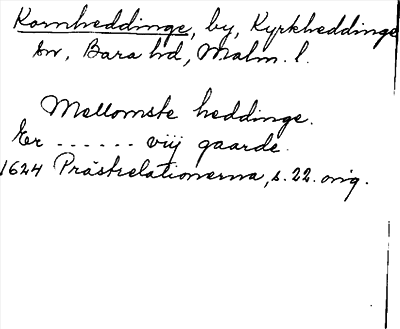 Kornheddinge, by, Kyrkheddinge
sn, Bara hd, Malm. l.
Mellomste heddinge.
Er ...... viij gaarde.
1624 Prästrelationerna, s. 22. orig.